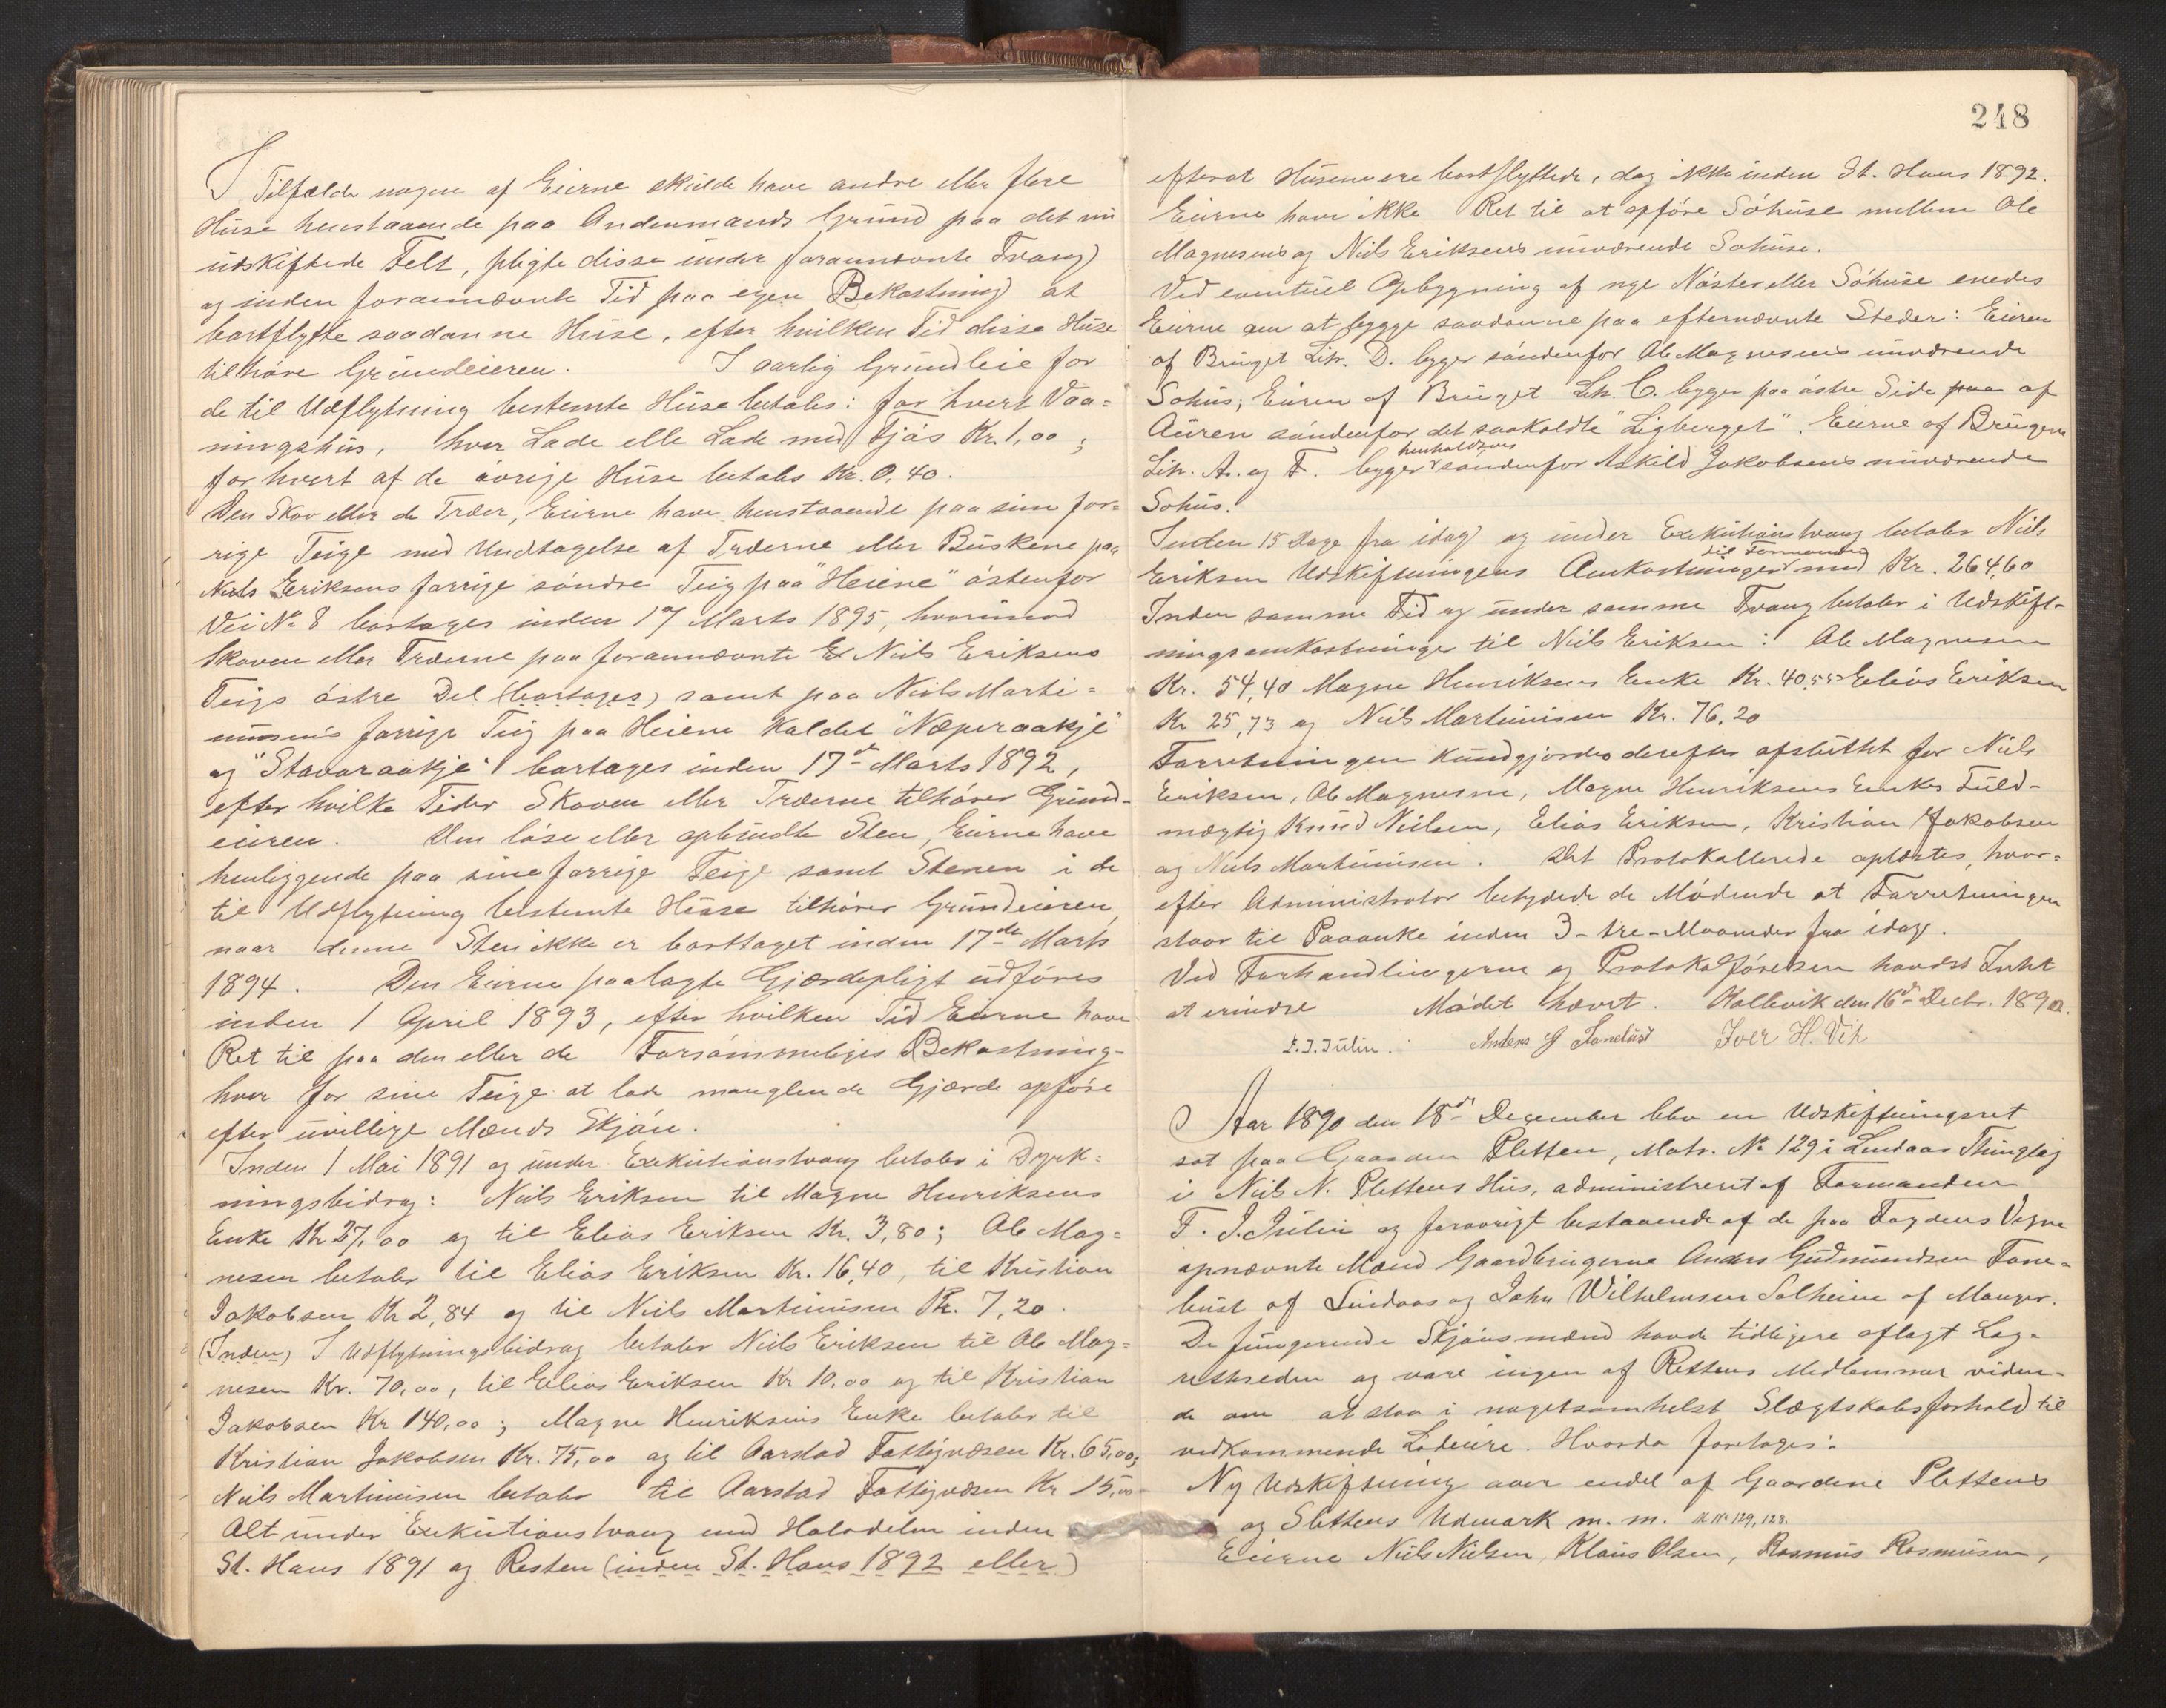 I Tilfælde nogen af Eierne skulde have andre eller flere
Huse henstaaende paa Andenmands Grund paa det nu
udskiftede Felt, pligte disse under forannævnte Tvang
og inden forannævnte Tid paa egen Bekostning at
bortflytte saadanne Huse, efter hvilken Tid disse Huse
tilhøre Grundeieren. I aarlig Grundleie for
de til Udflytning bestemte Huse betales: for hvert Vaa=
ningshus, hver Lade elle Lade med Fjøs Kr. 1,00;
for hvert af de øvrige Huse betales Kr. 0,40.
Den Skov eller de Træer, Eierne have henstaaende paa sine for=
rige Teige med Undtagelse af Træerne eller Buskene paa
Niels Eriksens forrige søndre Teig paa "Heiene" østenfor
Vei No 8 bortages inden 17 Marts 1895, hvorimod
Skoven eller Træerne paa forannævnte Niels Eriksens
Teigs østre Del (bortages) samt paa Niels Marti=
nusens forrige Teig paa Heiene kaldet "Næperaakje"
og "Stavaraakje" bortages inden 17de Marts 1892,
efter hvilke Tider Skoven eller Træerne tilhører Grund-
eieren. Den løse eller opbrudte Sten, Eierne have
henliggende paa sine forrige Teige samt Stenen i de
til Udflytning bestemte Huse tilhører Grundeieren,
naar denne Sten ikke er borttaget inden 17de Marts
1894. Den Eierne paalagte Gjærdepligt udføres
inden 1 April 1893, efter hvilken Tid Eierne have
Ret til paa den eller de Forsømmeliges Bekostning-
hver for sine Teige at lade manglende Gjærde opføre
efter uvillige Mænds Skjøn.
Inden 1 Mai 1891 og under Exekutionstvang betaler i Dyrk=
ningsbidrag: Niels Eriksen til Magne Henriksens
Enke Kr 27,00 og til Elias Eriksen Kr. 3,80; Ole Mag=
nesen betaler til Elias Eriksen Kr. 16,40, til Kristian
Jakobsen Kr 2,84 og til Niels Martinusen Kr. 7,20.
(Inden) I Udflytningsbidrag betaler Niels Eriksen til Ole Mag=
nesen Kr. 70,00, til Elias Eriksen Kr 10,00 og til Kristian
Jakobsen Kr 140,00; Magne Henriksens Enke betaler til
Kristian Jakobsen Kr. 75,00 og til Aarstad Fattigvæsen Kr. 65,00;
Niels Martinusen betaler til Aarstad Fattigvæsen Kr 15,00
Alt under Exekutionstvang med Halvdelen inden
St. Hans 1891 og Resten (inden St. Hans 1892 eller)
248
efterat Husene ere bortflyttede, dog ikke inden St. Hans 1892.
Eierne have ikke Ret til at opføre Søhuse mellem Ole
Magnesens og Niels Eriksens nuværende Søhuse.
Ved eventuel Opbygning af nye Nøster eller Søhuse enedes
Eierne om at bygge saadanne paa efternævnte Steder: Eieren
af Bruget Litr. D. bygger søndenfor Ole Magnesens nuværende
Søhus; Eieren af Bruget Litr. C. bygger paa østre Side paa af
Auren søndenfor det saakaldte "Ligberget". Eierne af Brugene
Litr. A. og F. bygger henholdsvis søndenfor Askild Jakobsens nuværende
Søhus.
Inden 15 Dage fra idag og under Exekutionstvang betaler Niels
Eriksen Udskiftningens Omkostninger til Formanden med Kr. 264,60
Inden samme Tid og under samme Tvang betaler i Udskift-
ningsomkostninger til Niels Eriksen: Ole Magnesen
Kr. 54,40 Magne Henriksens Enke Kr. 40,55 Elias Eriksen
Kr 25,73 og Niels Martinusen Kr. 76,20
Forretningen kundgjordes derefter afsluttet for Niels
Eriksen, Ole Magnesen, Magne Henriksens Enkes Fuld-
mægtig Knud Nielsen, Elias Eriksen, Kristian Jakobsen
og Niels Martinusen. Det Protokollerede oplæstes, hvor=
efter Administrator betydede de Mødende at Forretningen
staar til Paaanke inden 3-tre-Maaneder fra idag.
Ved Forhandlingerne og Protokolførelsen havdes Intet
at erindre Mødet hævet. Kollevik den 16de Decbr. 1890.
F. J. Julin. Anders G Fanebust Iver H. Vik
Aar 1890 den 18de December blev en Udskiftningsret
sat paa Gaarden Pletten, Matr. No 129 i Lindaas Thinglag
i Niels N. Plettens Hus, administreret af Formanden
F. J. Julin og forøvrigt bestaaende af de paa Fogdens Vegne
opnævnte Mænd Gaardbrugerne Anders Gudmundsen Fane-
bust af Lindaas og John Wilhelmsen Solheim af Manger.
De fungerende Skjønsmænd havde tidligere aflagt Lag-
rettseden og vare ingen af Rettens Medlemmer viden-
de om at staa i nogetsomhelst Slægtskabsforhold til
vedkommende Lodeiere. Hvorda foretoges:
Ny Udskiftning over endel af Gaardene Plettens
og Slettens Udmark m. m. M No 129, 128.
Eierne Niels Nielsen, Klaus Olsen, Rasmus Rasmusen,